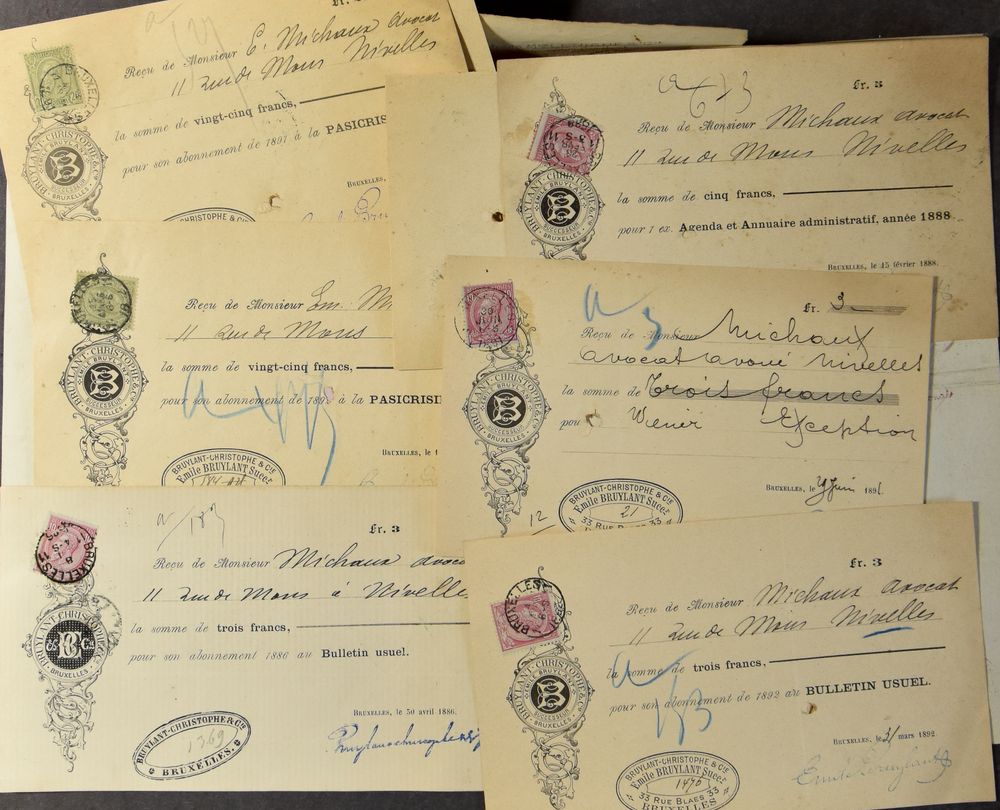 Reçu de Monsieur E. Michaux avocat
11 rue de Mons Nivelles
la somme de vingt-cinq francs,
pour son abonnement de 1897 à la PASICRIS
BRUXELLES
BRUYLANT-CHRISTOPHE & Cie
EMILE BRUYLANT
SUCCESSEUR
BRUXELLES
BRUYLANT-CHRISTOPHE & Cie
Fr. 5
Reçu de Monsieur Michaux avocat
11 rue de Mons Nivelles
la somme de cinq francs,
pour 1 ex. Agenda et Annuaire administratif, année 1888
BRUXELLES, le 15 février 1888.
BRUYLANT-CHRISTOPHE & Cie
EMILE BRUYLANT
SUCCESSEUR
BRUXELLES
Reçu de Monsieur Em. Mi
11 rue de Mons
la somme de vingt-cinq francs,
pour son abonnement de 189 à la PASICRISI
BRUXELLES, le 1
BRUYLANT-CHRISTOPHE & Cie
EMILE BRUYLANT
SUCCESSEUR
BRUXELLES
BRUYLANT-CHRISTOPHE & Cie
Emile BRUYLANT Succr
Fr. 3
Reçu de Monsieur Michaux
avocat avoué Nivelles
la somme de trois francs
pou Wiener Exception
BRUXELLES, le Juin 189
BRUYLANT-CHRISTOPHE & Cie
EMILE BRUYLANT
SUCCESSEUR
BRUXELLES
12
BRUYLANT-CHRISTOPHE & Cie
Emile BRUYLANT Succr
21
33 RUE BLAES 33
Fr. 3
Reçu de Monsieur Michaux avoca
11 rue de Mons à Nivelle
la somme de trois francs,
pour son abonnement 1886 au Bulletin usuel.
BRUXELLES, le 30 avril 1886.
BRUYLANT-CHRISTOPHE
& Cie
BRUXELLES
BRUYLANT-CHRISTOPHE & Cie
1369
BRUXELLES.
Fr. 3
Reçu de Monsieur Michaux avocat
11 rue de Mons Nivelles
la somme de trois francs,
pour son abonnement de 1892 au BULLETIN USUEL.
BRUXELLES, le 31 mars 1892.
Emile Bruylant
BRUYLANT-CHRISTOPHE & Cie
EMILE BRUYLANT
SUCCESSEUR
BRUXELLES
BRUYLANT-CHRISTOPHE & Cie
Emile BRUYLANT Succr
1476
33 RUE BLAES 33
BRUXELLES